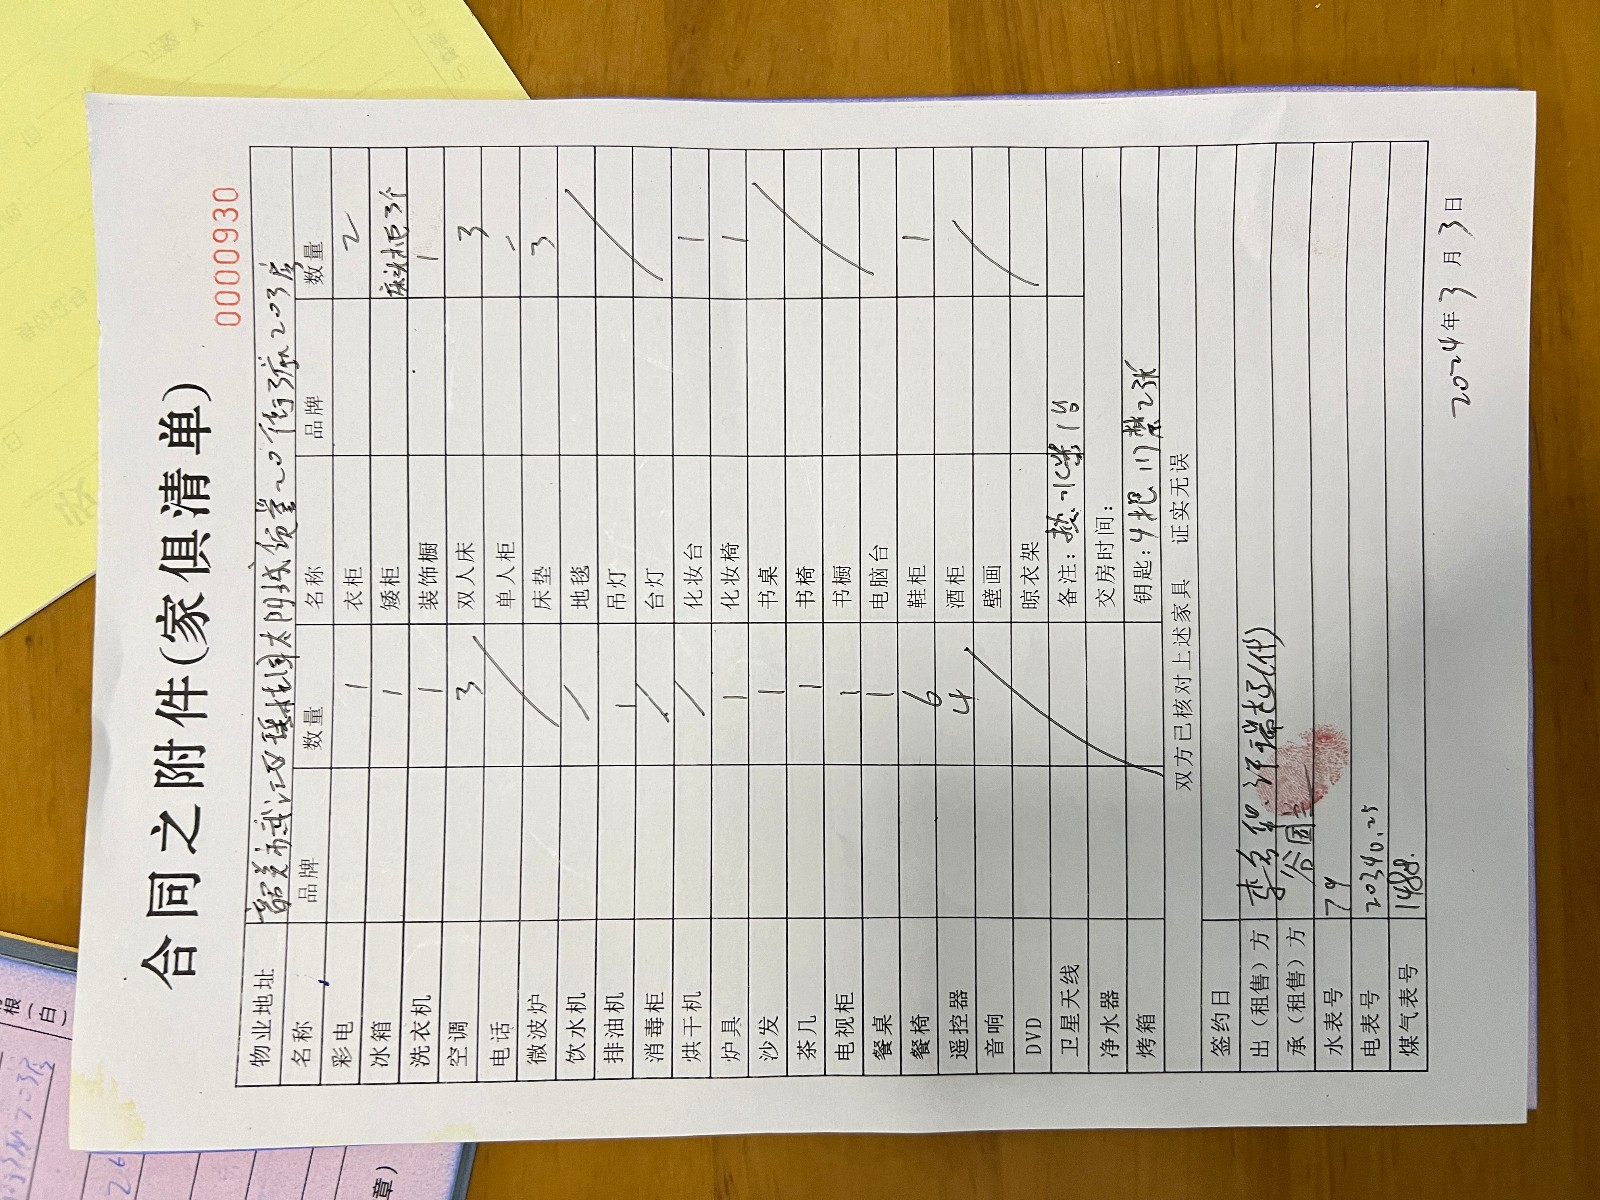 合同之附件(家俱清单)
0000930
物业地址 韶关市武江区 太阳城 20 街 203房
名称 品牌 数量 名称 品牌 数量
彩电 1 衣柜 2
冰箱 1 矮柜 床头柜3个
洗衣机 1 装饰橱 1
空调 3 双人床 3
电话 单人柜
微波炉 床垫 3
饮水机 地毯
排油机 1 吊灯
消毒柜 台灯
烘干机 化妆台 1
炉具 1 化妆椅 1
沙发 1 书桌
茶几 1 书椅
电视柜 1 书橱
餐桌 1 电脑台
餐椅 6 鞋柜 1
遥控器 4 酒柜
音响 壁画
DVD 晾衣架
卫星天线 备注: 热水器1台
净水器 交房时间:
烤箱 钥匙: 4把 门禁2张
双方已核对上述家具 证实无误
签约日
出(租售)方
承(租售)方
水表号 79
电表号 20340.25
煤气表号 1488.
2024年3月3日
根(白)
203房
章)